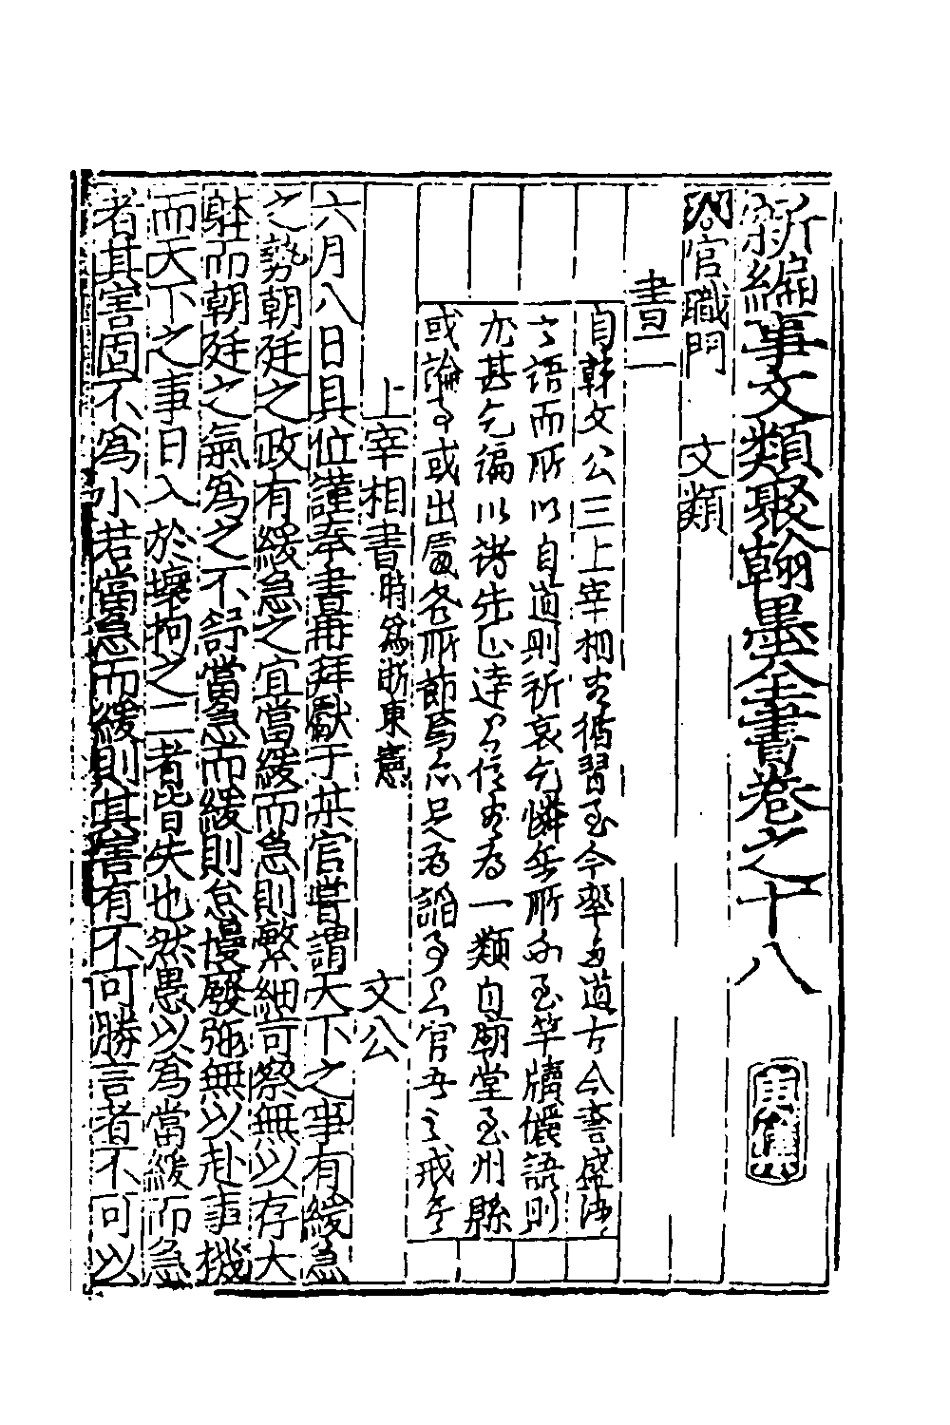 新編事文類聚翰墨全書卷之十八 庚集
官職門 文類
書二
自韓文公三上宰相書循習至今率与道古今書盛沛
之語而所以自道則祈哀乞憐無所不至竿牘儷語則
尤甚乞徧以諸先正達官信書为一類自朝堂至州縣
或論事或出處各所節焉亦足为諂事上官者之戒云
上宰相書時爲浙東憲 文公
六月八日具位謹奉書再拜獻于某官嘗謂天下之事有緩急
之勢朝廷之政有緩急之宜當緩而急則繁細苛察無以存大
躰而朝廷之氣爲之不舒當急而緩則怠慢廢弛無以赴事機
而天下之事日入於壞拘之二者皆失也然愚以爲當緩而急
者其害固不爲小若當急而緩則其害有不可勝言者不可以